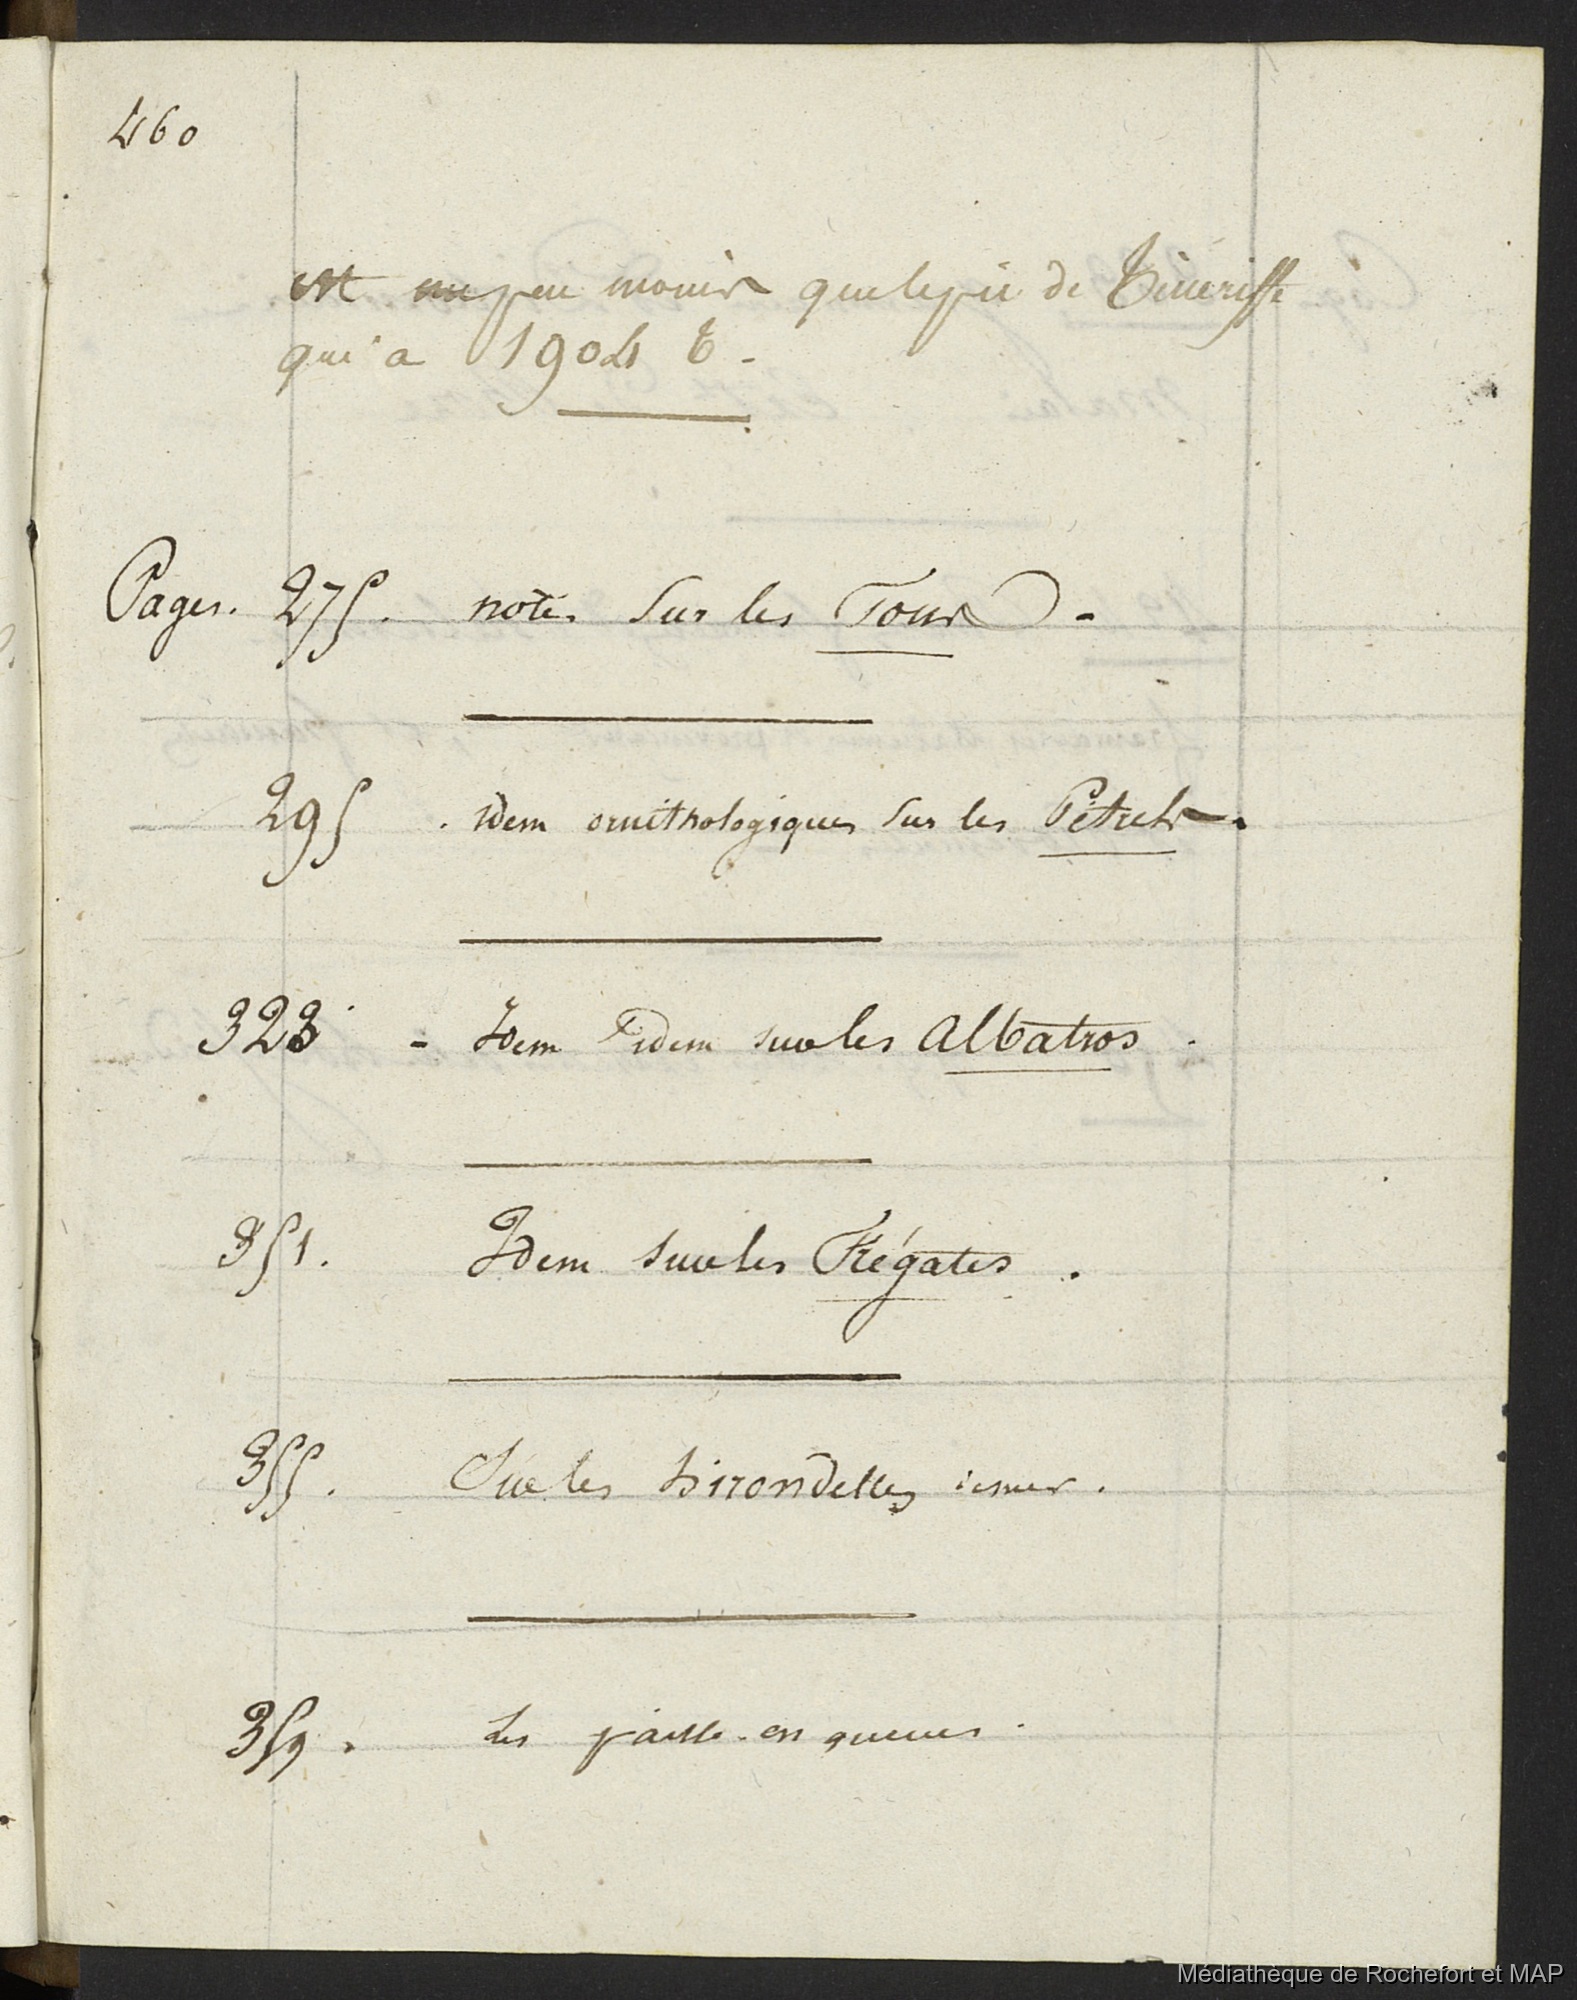 460
est un peu moins que le pic de Ténériffe
qui a 1904 t -
Pages. 275. notes sur les Fous -
295 . idem ornithologiques sur les Pétrels -.
323. - Idem idem sur les Albatros .
351. Idem sur les Frégates .
355. Sur les hirondelles de mer .
359. Les paille-en queues .
Médiathèque de Rochefort et MAP